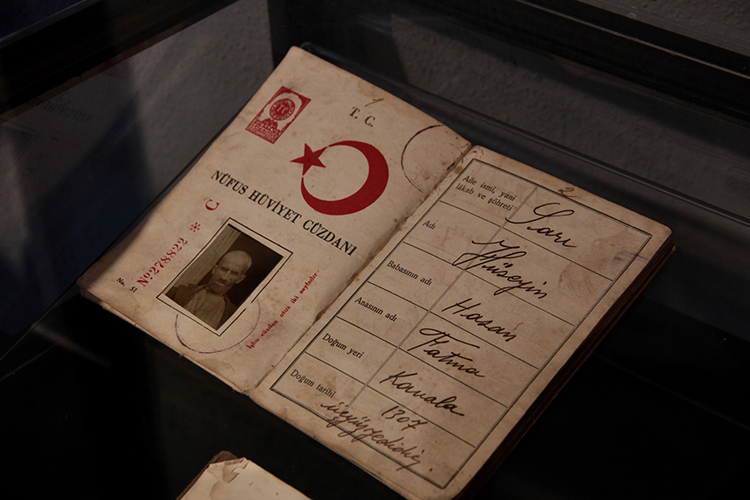 1
T. C.
NÜFUS HÜVİYET CÜZDANI
Nº278822
No. 51
İşbu cüzdan otuz iki sayfadır.
2
Aile ismi, yani
lâkab ve şöhreti
Sarı
Adı
Hüseyin
Babasının adı
Hasan
Anasının adı
Fatma
Doğum yeri
Kavala
Doğum tarihi
1307
üçyüzyedidir.